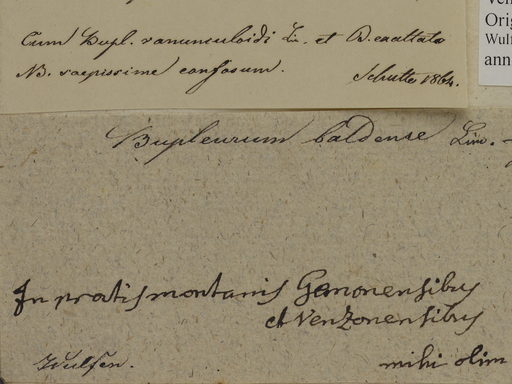 Cum Bupl. ranunculoidi Lin. et B. exaltato
NB. saepissime confusum. Schulte 1864.
Ven
Orig
Wulf
ann
Bupleurum baldense Linn. -
In pratis montanis Gemonensibus
et Venzonensibus
Wulfen. mihi olim